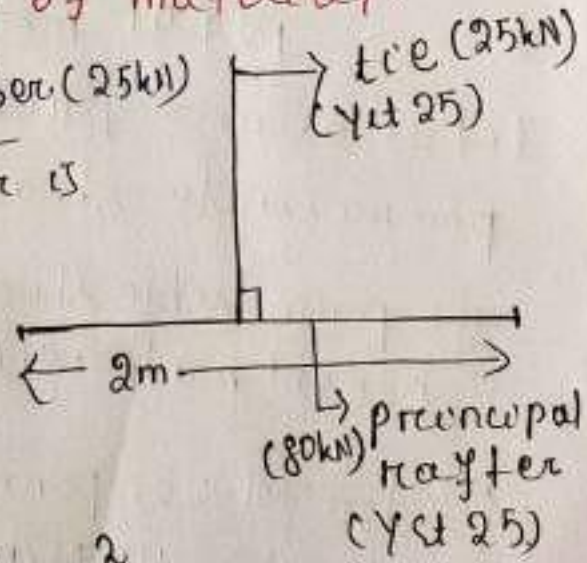 of material
ber (25kN)
r is
tie (25kN)
(Yst 25)
2m
(80kN) Principal
rafter
(Yst 25)
2